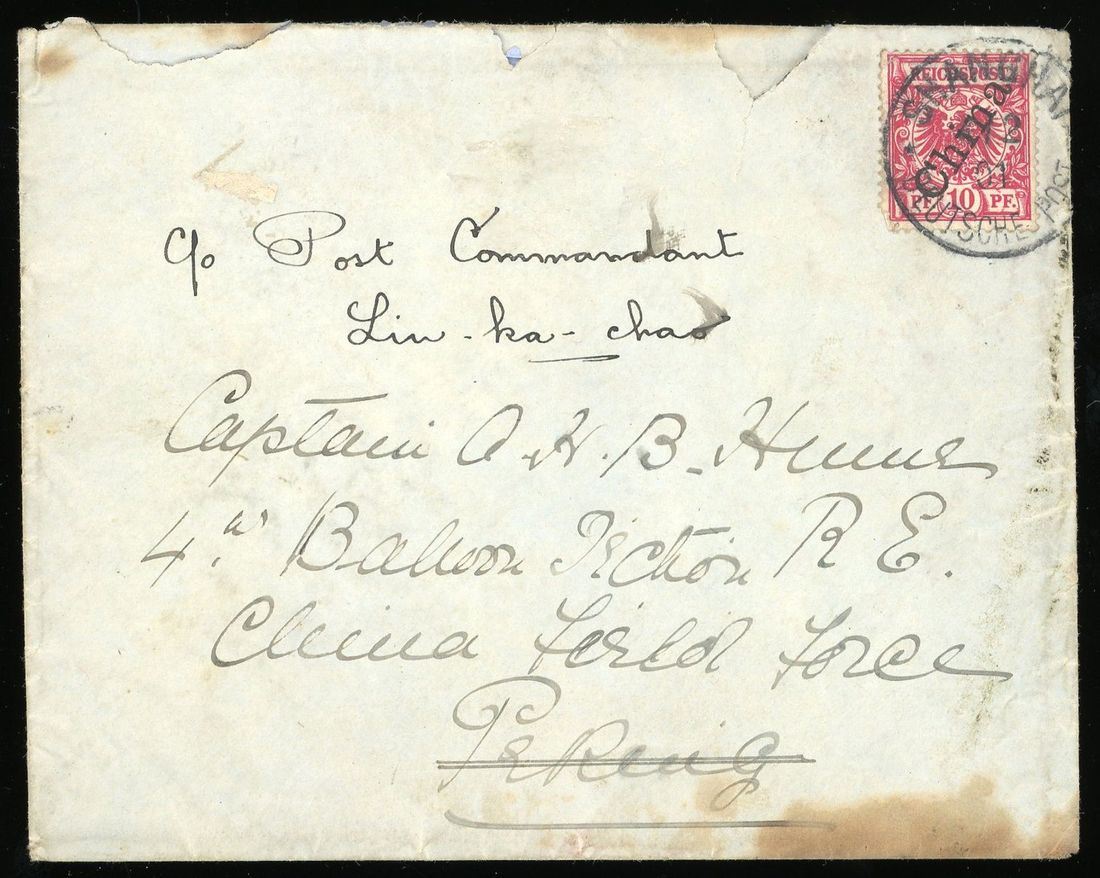 REICHSPOST
China
PF. 10 PF.
SHANGHAI
DEUTSCHE POST
c/o Post Commandant
Lin-ka-chao
Captain A. H. B. Hume
4th Balloon Section R E.
China Field Force
Peking